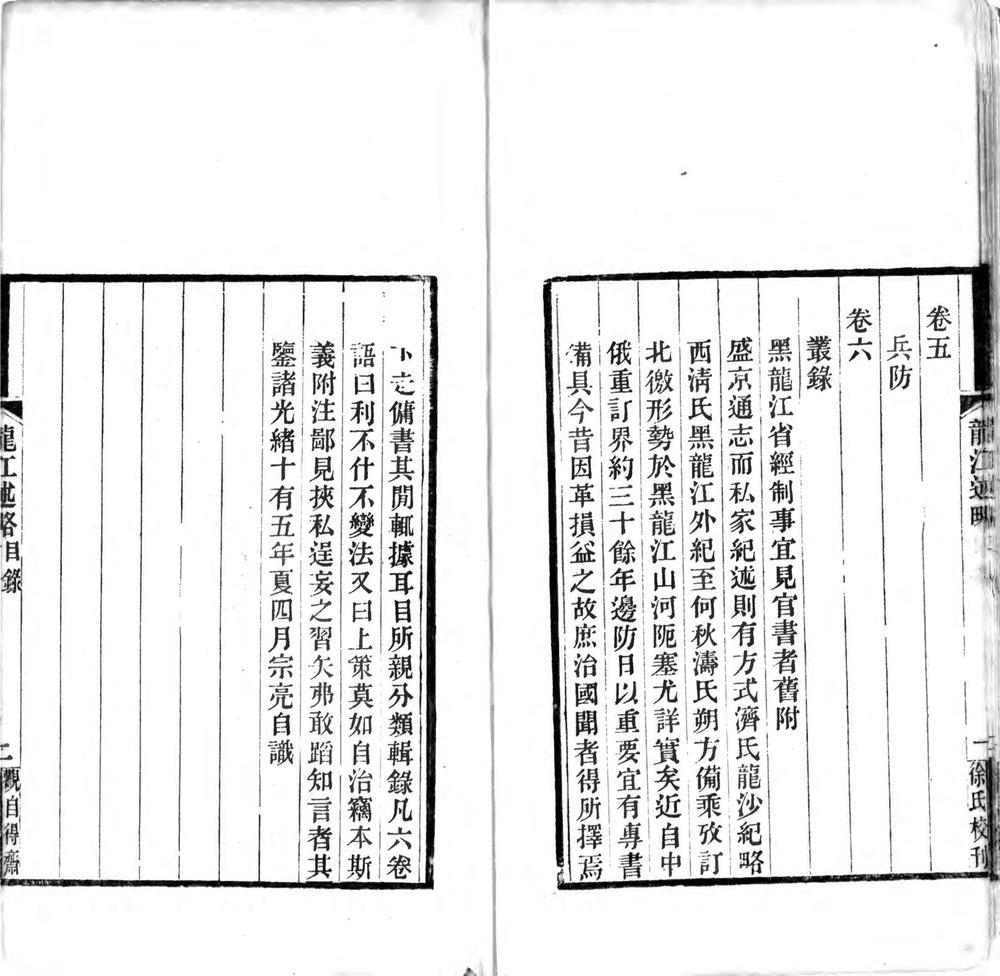 卷五
兵防
卷六
叢錄
黑龍江省經制事宜見官書者舊附
盛京通志而私家紀述則有方式濟氏龍沙紀略
西清氏黑龍江外紀至何秋濤氏朔方備乘攷訂
北徼形勢於黑龍江山河阨塞尤詳實矣近自中
俄重訂界約三十餘年邊防日以重要宜有專書
備具今昔因革損益之故庶治國聞者得所擇焉
龍江述略
一
徐氏校刊
之傭書其閒輒據耳目所親分類輯錄凡六卷
語曰利不什不變法又曰上策莫如自治竊本斯
義附注鄙見挾私逞妄之習矢弗敢蹈知言者其
鑒諸光緒十有五年夏四月宗亮自識
龍江述略目錄
二
觀自得齋